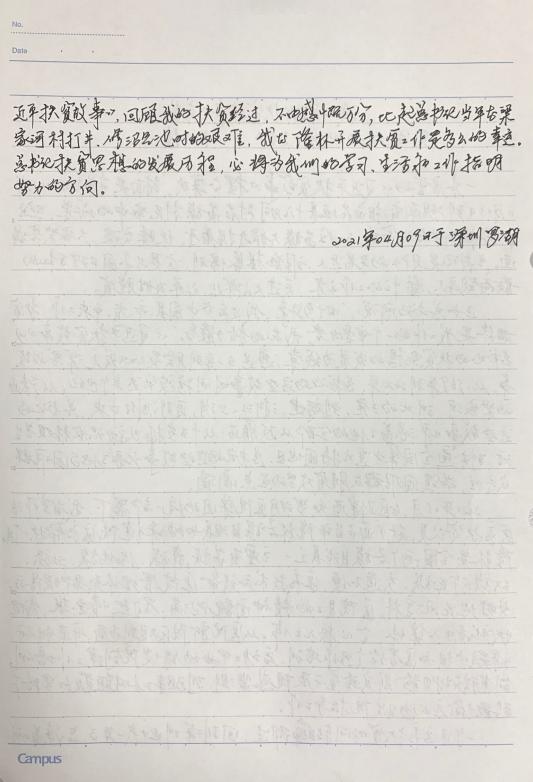 No.
Data
近平扶贫故事》，回顾我的扶贫经过，不由感慨万分，比起总书记当年在梁
家河村打井、修沼气池时的艰难，我在隆林开展扶贫工作是多么的幸运。
总书记扶贫思想的发展历程，必将为我们的学习、生活和工作指明
努力的方向。
2021年04月09日于深圳罗湖
Campus